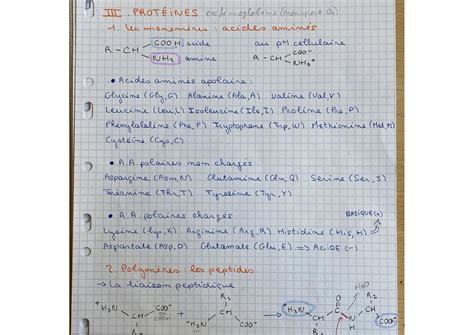 III. PROTÉINES ex: hémoglobine (transport O₂)
1. les monomères : acides aminés
COOH acide
R - CH
NH₂ amine
au pH cellulaire
COO⁻
R - CH
NH₃⁺
• Acides aminés apolaire :
Glycine (Gly, G) Alanine (Ala, A) Valine (Val, V)
Leucine (Leu, L) Isoleucine (Ile, I) Proline (Pro, P)
Phénylalaline (Phe, P) Tryptophane (Trp, W) Methionine (Met, M)
Cystéine (Cys, C)
• A.A. polaires non chargés
Aspargine (Asn, N) Glutamine (Gln, Q) Serine (Ser, S)
Thréanine (Thr, T) Tyrosine (Tyr, Y)
• A.A. polaires chargés
BASIQUE (+)
Lysine (Lys, K) Arginine (Arg, R) Histidine (His, H)
Aspartate (Asp, D) Glutamate (Glu, E) => ACIDE (-)
2. Polymères : les peptides
-> la liaison peptidique
H₂O
⁺H₃N COO⁻ + ⁺H₃N R₂ COO⁻ ⁺H₃N O R₂
CH R₁ CH CH C N CH COO⁻
R₁ H